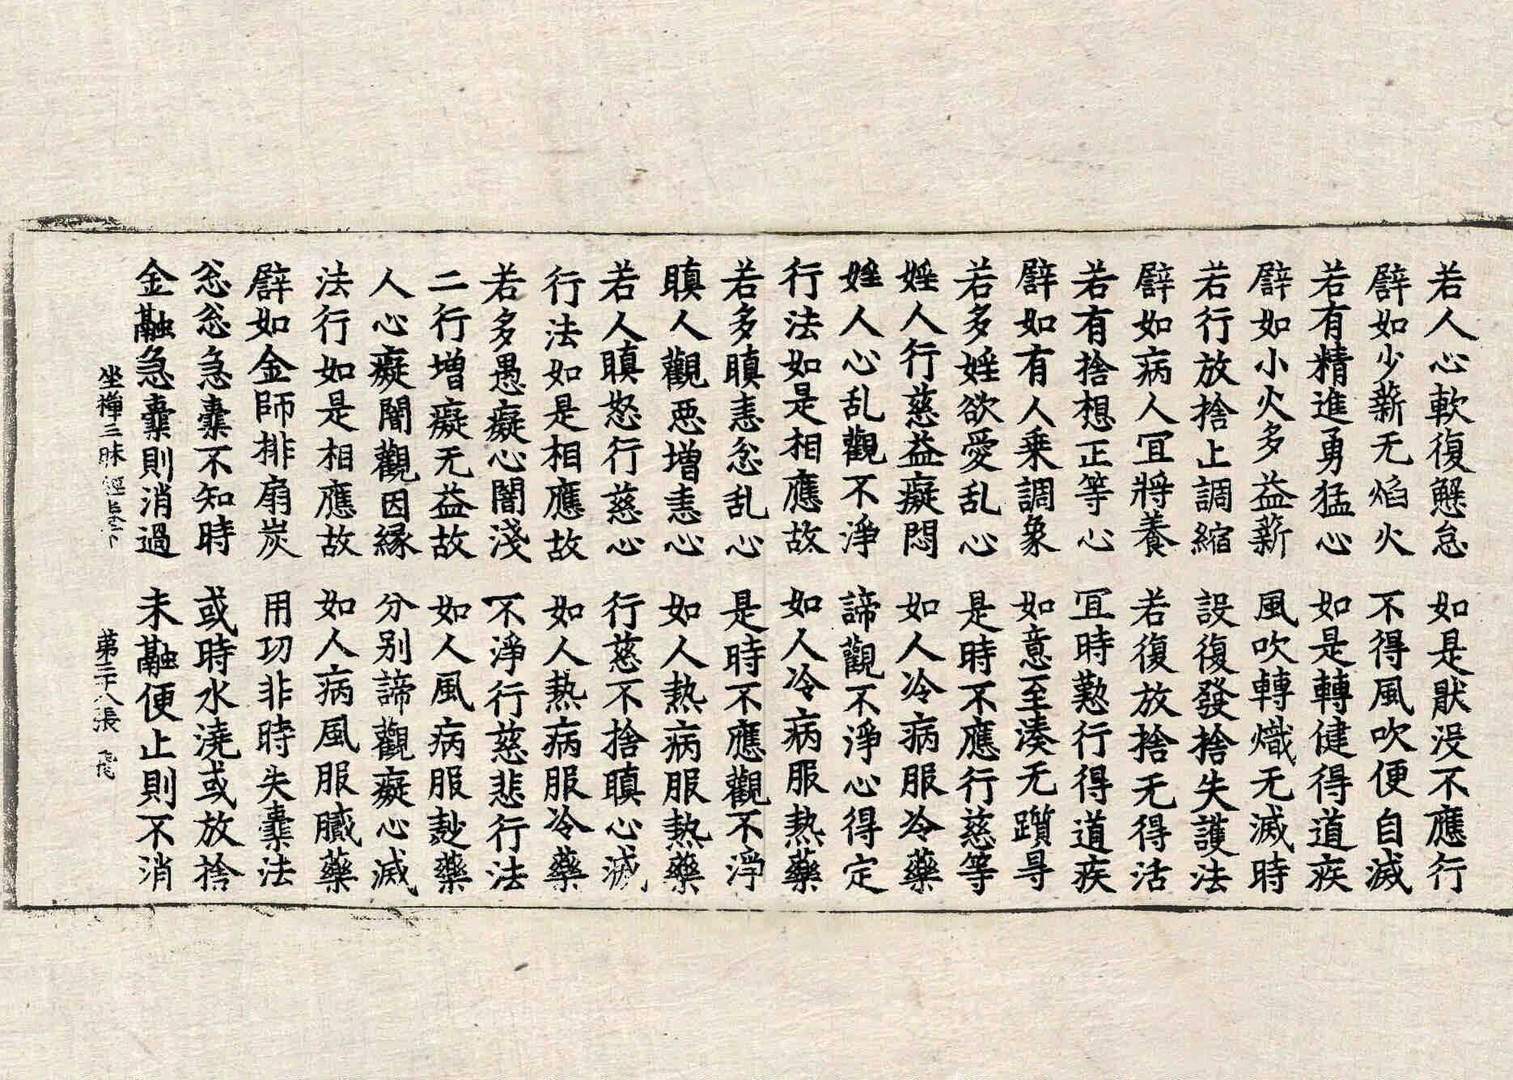 若人心軟復懈怠　如是猒没不應行
譬如少薪无焰火　不得風吹便自滅
若有精進勇猛心　如是轉健得道疾
譬如小火多益薪　風吹轉熾无滅時
若行放捨止調縮　設復發捨失護法
譬如病人冝將養　若復放捨无得活
若有捨想正等心　冝時懃行得道疾
譬如有人乗調象　如意至湊无躓㝵
若多婬欲愛乱心　是時不應行慈等
婬人行慈益癡悶　如人冷病服冷藥
婬人心乱觀不淨　諦觀不淨心得定
行法如是相應故　如人冷病服熱藥
若多瞋恚忿乱心　是時不應觀不淨
瞋人觀惡增恚心　如人熱病服熱藥
若人瞋怒行慈心　行慈不捨瞋心滅
行法如是相應故　如人熱病服冷藥
若多愚癡心闇淺　不淨行慈悲行法
二行增癡无益故　如人風病服麨藥
人心癡闇觀因緣　分别諦觀癡心滅
法行如是相應故　如人病風服膩藥
譬如金師排扇炭　用功非時失橐法
忩忩急橐不知時　或時水澆或放捨
金融急橐則消過　未融便止則不消
坐禪三昧經　第三十八張